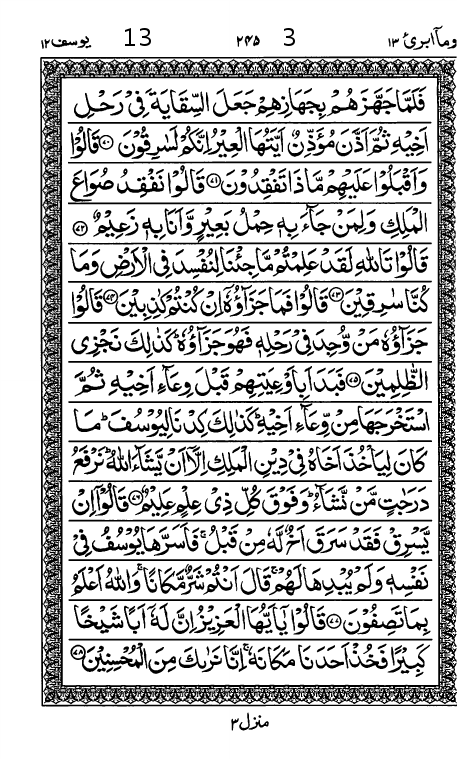 وما آبری ١٣ 3 ٢٤٥ 13 یوسف ١٢
فَلَمَّا جَهَّزَهُمْ بِجَهَازِهِمْ جَعَلَ السِّقَايَةَ فِىْ رَحْلِ
اَخِيْهِ ثُمَّ اَذَّنَ مُؤَذِّنٌ اَيَّتُهَا الْعِيْرُ اِنَّكُمْ لَسٰرِقُوْنَ ۝٧٠ قَالُوْا
وَاَقْبَلُوْا عَلَيْهِمْ مَّاذَا تَفْقِدُوْنَ ۝٧١ قَالُوْا نَفْقِدُ صُوَاعَ
الْمَلِكِ وَلِمَنْ جَآءَ بِهٖ حِمْلُ بَعِيْرٍ وَّاَنَا بِهٖ زَعِيْمٌ ۝٧٢
قَالُوْا تَاللّٰهِ لَقَدْ عَلِمْتُمْ مَّا جِئْنَا لِنُفْسِدَ فِى الْاَرْضِ وَمَا
كُنَّا سٰرِقِيْنَ ۝٧٣ قَالُوْا فَمَا جَزَآؤُهٗۤ اِنْ كُنْتُمْ كٰذِبِيْنَ ۝٧٤ قَالُوْا
جَزَآؤُهٗ مَنْ وُّجِدَ فِىْ رَحْلِهٖ فَهُوَ جَزَآؤُهٗ ؕ كَذٰلِكَ نَجْزِى
الظّٰلِمِيْنَ ۝٧٥ فَبَدَاَ بِاَوْعِيَتِهِمْ قَبْلَ وِعَآءِ اَخِيْهِ ثُمَّ
اسْتَخْرَجَهَا مِنْ وِّعَآءِ اَخِيْهِ ؕ كَذٰلِكَ كِدْنَا لِيُوْسُفَ ؕ مَا
كَانَ لِيَاْخُذَ اَخَاهُ فِىْ دِيْنِ الْمَلِكِ اِلَّاۤ اَنْ يَّشَآءَ اللّٰهُ ؕ نَرْفَعُ
دَرَجٰتٍ مَّنْ نَّشَآءُ ؕ وَفَوْقَ كُلِّ ذِىْ عِلْمٍ عَلِيْمٌ ۝٧٦ قَالُوْۤا اِنْ
يَّسْرِقْ فَقَدْ سَرَقَ اَخٌ لَّهٗ مِنْ قَبْلُ ۚ فَاَسَرَّهَا يُوْسُفُ فِىْ
نَفْسِهٖ وَلَمْ يُبْدِهَا لَهُمْ ۚ قَالَ اَنْتُمْ شَرٌّ مَّكَانًا ۚ وَاللّٰهُ اَعْلَمُ
بِمَا تَصِفُوْنَ ۝٧٧ قَالُوْا يٰۤاَيُّهَا الْعَزِيْزُ اِنَّ لَهٗۤ اَبًا شَيْخًا
كَبِيْرًا فَخُذْ اَحَدَنَا مَكَانَهٗ ۚ اِنَّا نَرٰىكَ مِنَ الْمُحْسِنِيْنَ ۝٧٨
منزل ٣